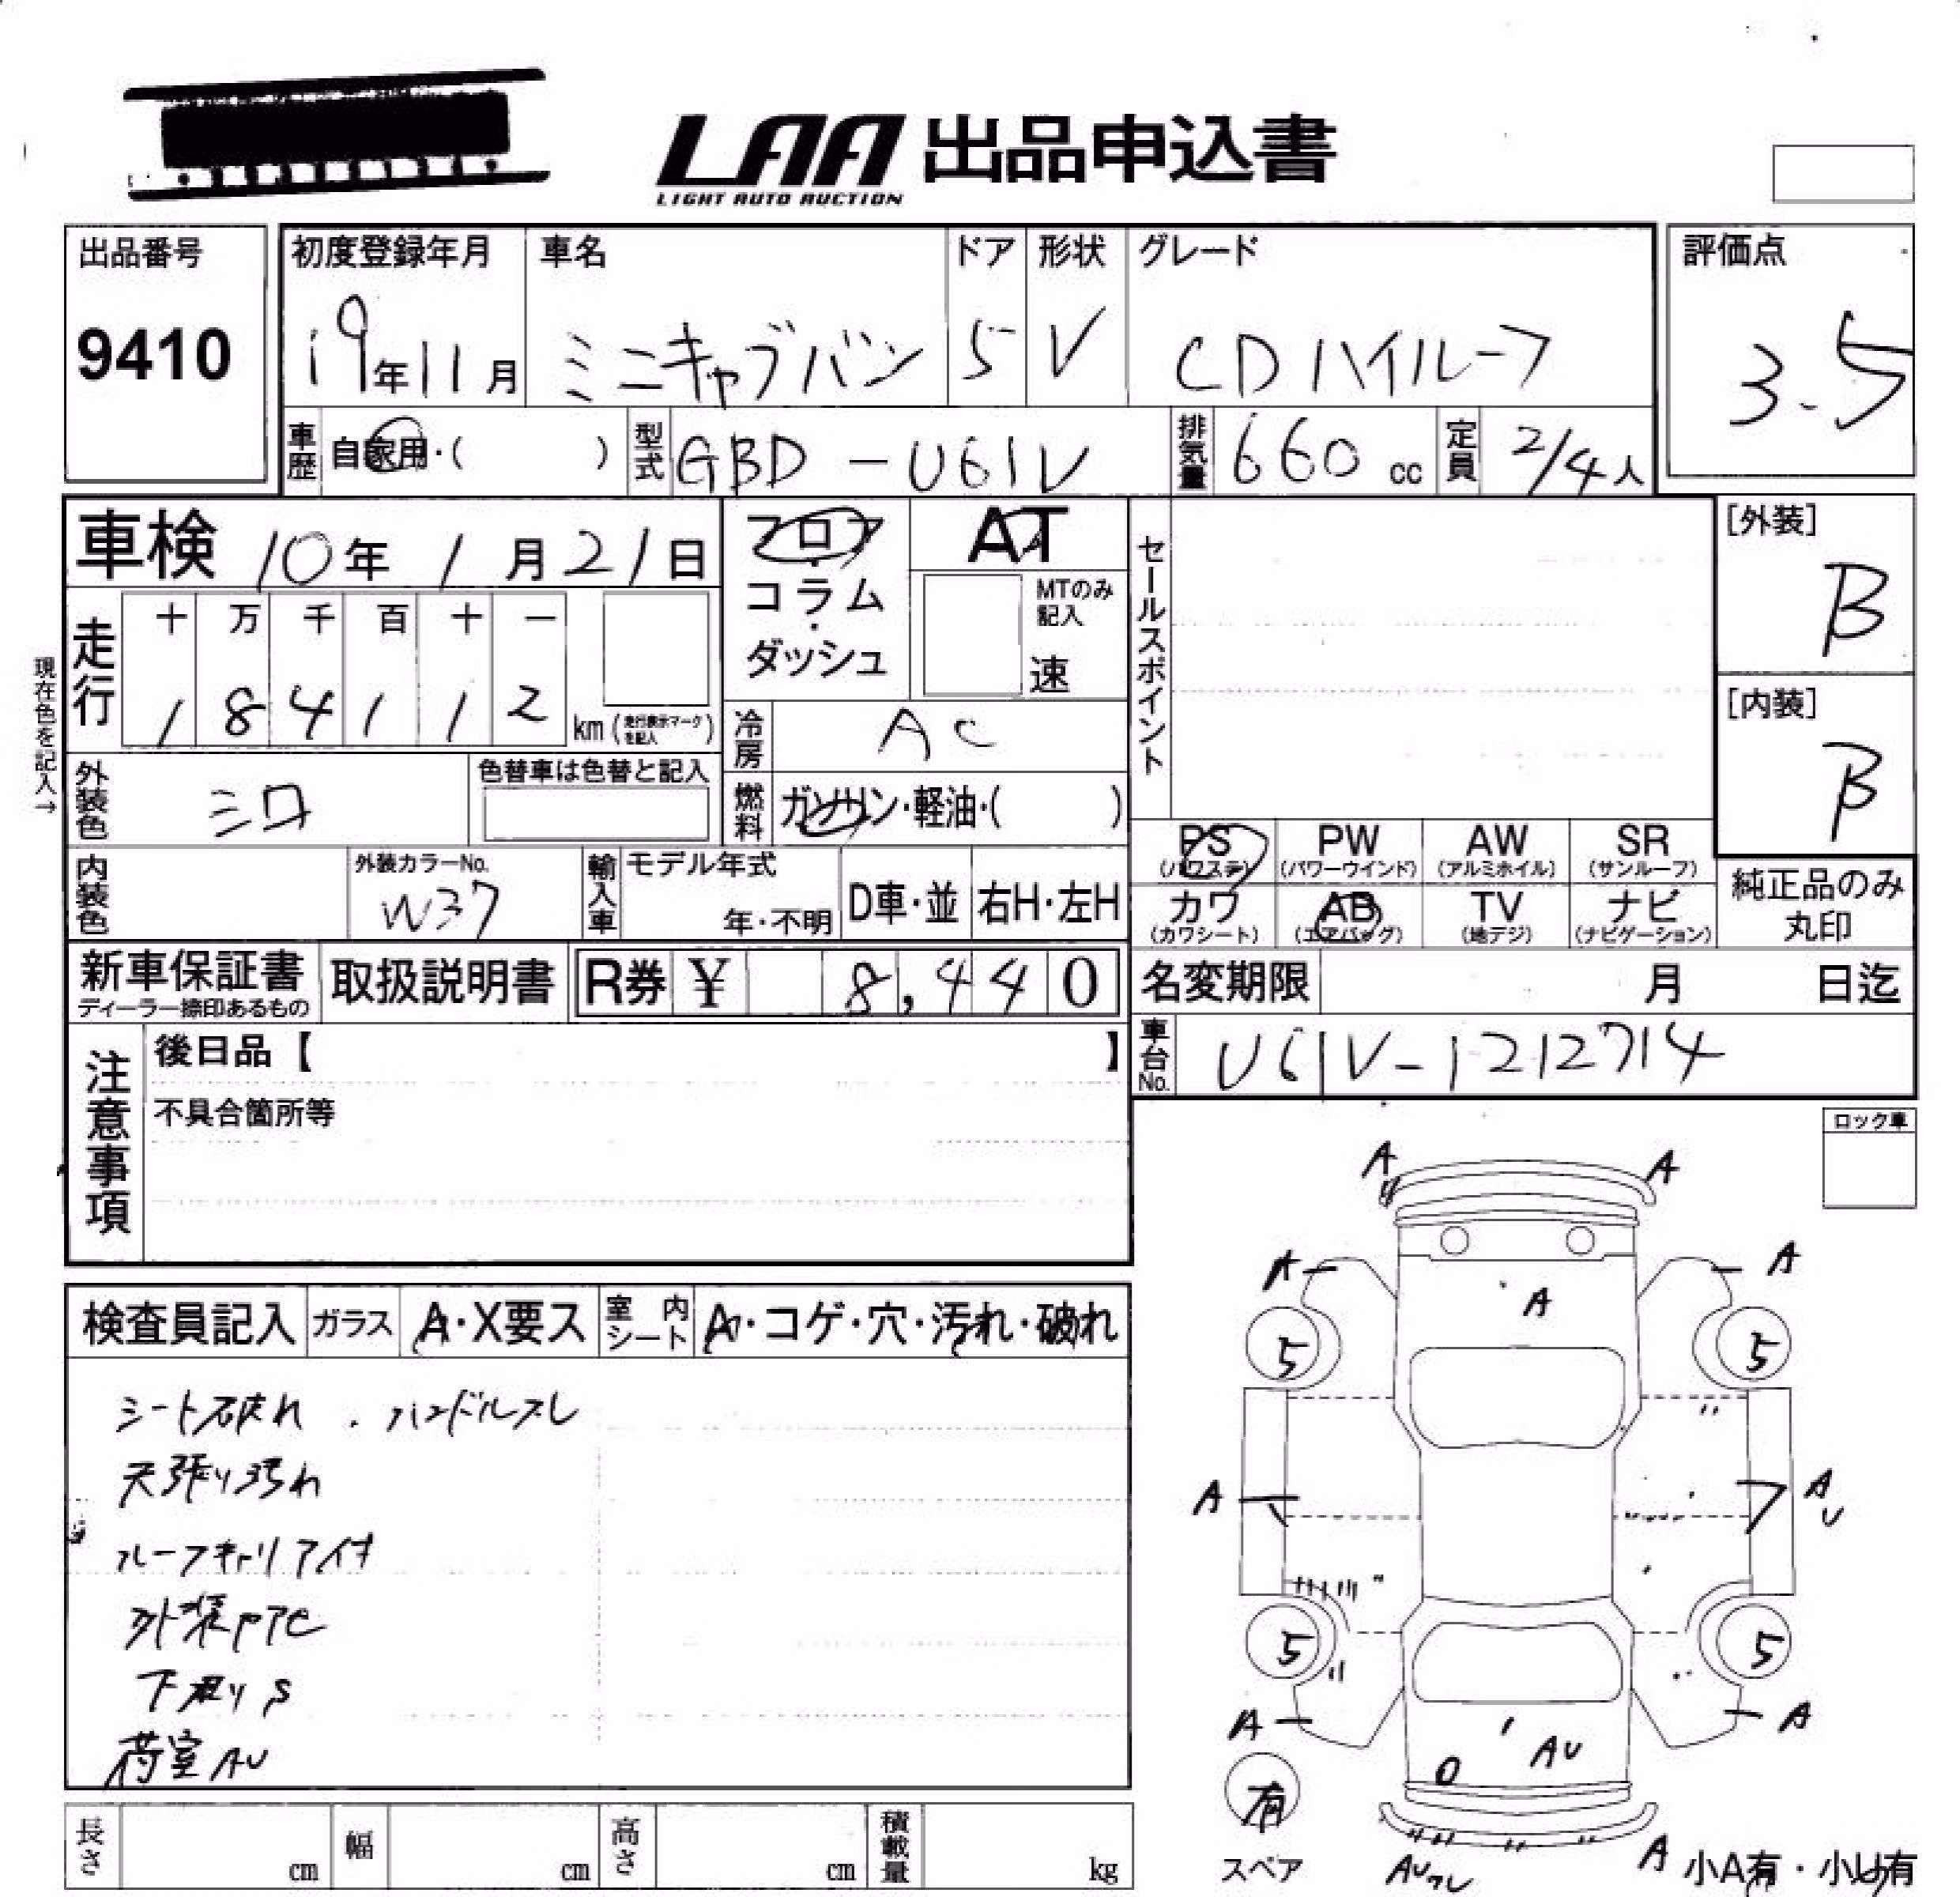 LAA 出品申込書
LIGHT AUTO AUCTION
出品番号
9410
初度登録年月
19年11月
車名
ミニキャブバン
ドア
5
形状
V
グレード
CDハイルーフ
評価点
3.5
車歴
自家用・( )
型式
GBD-U61V
排気量
660 cc
定員
2/4人
車検 10年1月21日
フロア
コラム
・
ダッシュ
AT
MTのみ
記入
速
セールスポイント
[外装]
B
[内装]
B
現在色を記入→
走行
十 万 千 百 十 一
1 8 4 1 1 2
km(走行表示マークを記入)
冷房
AC
外装色
シロ
色替車は色替と記入
燃料
ガソリン・軽油・( )
PS
(パワステ)
PW
(パワーウインド)
AW
(アルミホイル)
SR
(サンルーフ)
カワ
(カワシート)
AB
(エアバッグ)
TV
(地デジ)
ナビ
(ナビゲーション)
純正品のみ
丸印
内装色
外装カラーNo.
W37
輸入車
モデル年式
年・不明
D車・並
右H・左H
新車保証書
ディーラー捺印あるもの
取扱説明書
R券 ¥ 8,440
名変期限 月 日迄
車台No.
U61V-1212714
注意事項
後日品【 】
不具合箇所等
ロック車
検査員記入
ガラス
A・X要ス
室内シート
A・コゲ・穴・汚れ・破れ
シート破れ . ハンドルスレ
天張り汚れ
ルーフキャリア付
外装
下廻りS
荷室AU
A A
A A
A
5 5
A A
U
5 5
A A
AU
有
スペア
A
小A有・小U有
長さ cm
幅 cm
高さ cm
積載量 kg